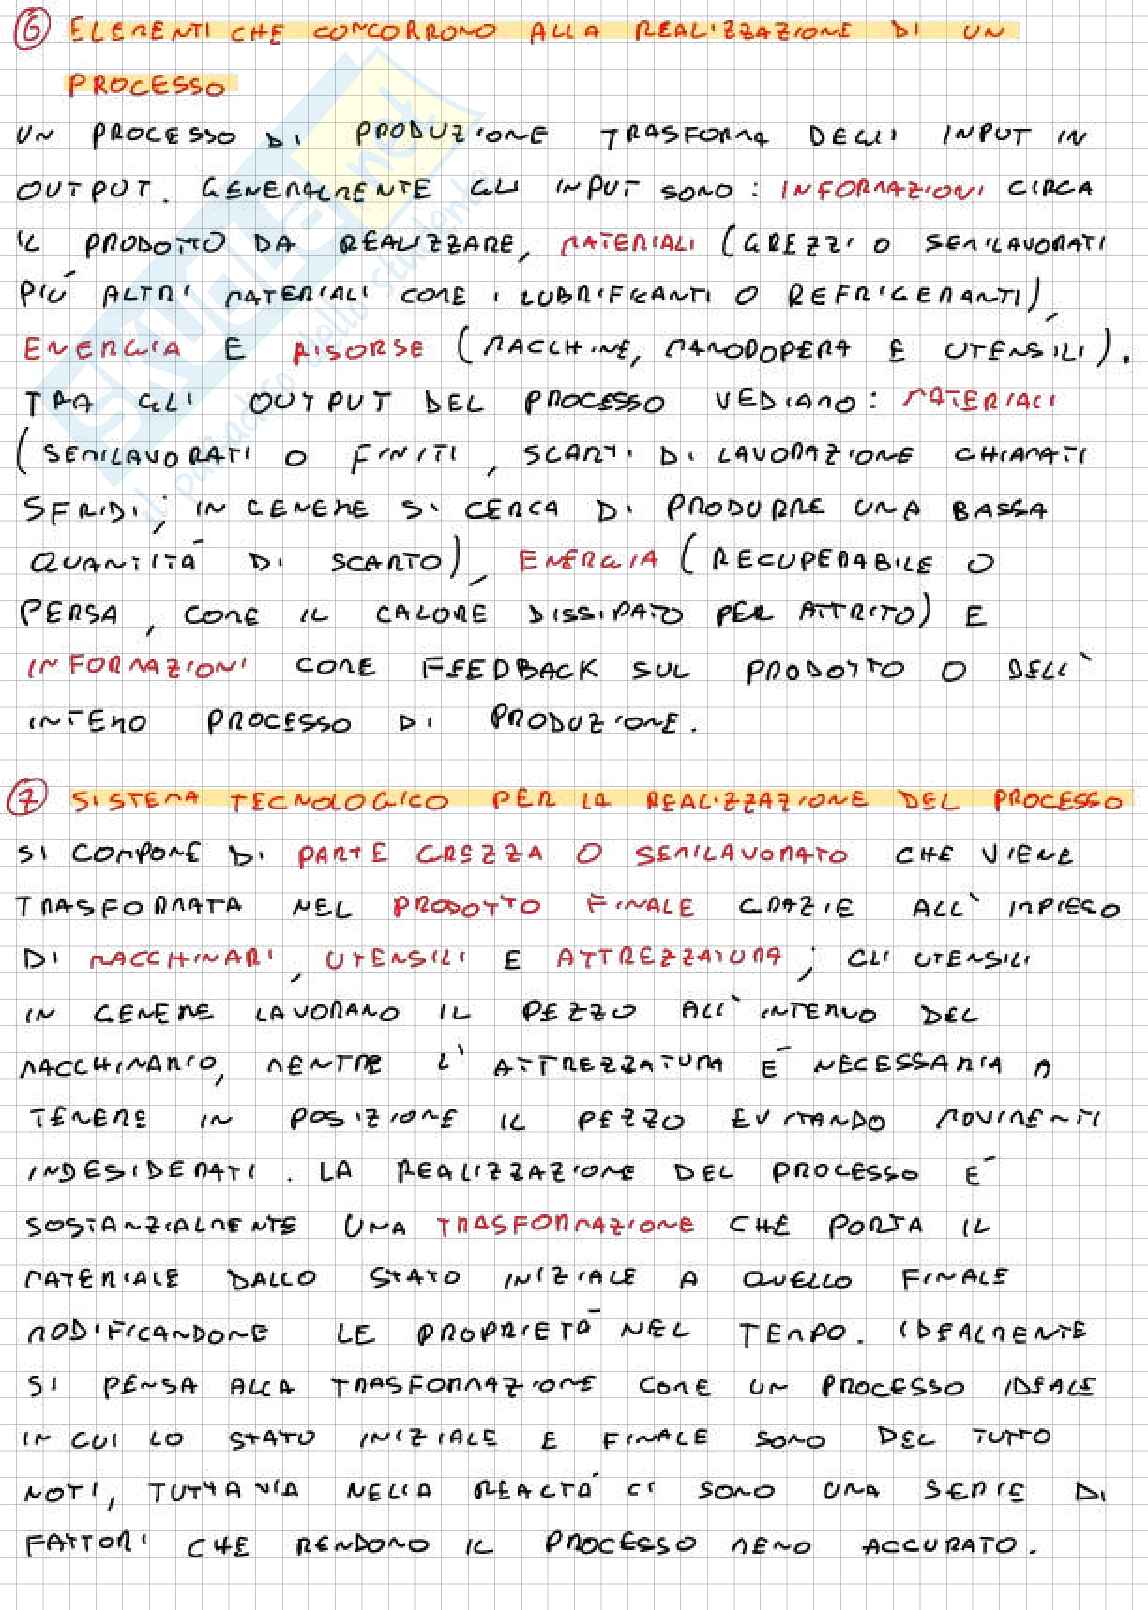 6 ELEMENTI CHE CONCORRONO ALLA REALIZZAZIONE DI UN
PROCESSO
UN PROCESSO DI PRODUZIONE TRASFORMA DEGLI INPUT IN
OUTPUT. GENERALMENTE GLI INPUT SONO: INFORMAZIONI CIRCA
IL PRODOTTO DA REALIZZARE, MATERIALI (GREZZI O SEMILAVORATI
PIÙ ALTRI MATERIALI COME I LUBRIFICANTI O REFRIGERANTI),
ENERGIA E RISORSE (MACCHINE, MANODOPERA E UTENSILI).
TRA GLI OUTPUT DEL PROCESSO VEDIAMO: MATERIALI
(SEMILAVORATI O FINITI, SCARTI DI LAVORAZIONE CHIAMATI
SFRIDI; IN GENERE SI CERCA DI PRODURRE UNA BASSA
QUANTITÀ DI SCARTO), ENERGIA (RECUPERABILE O
PERSA, COME IL CALORE DISSIPATO PER ATTRITO) E
INFORMAZIONI COME FEEDBACK SUL PRODOTTO O DELL'
INTERO PROCESSO DI PRODUZIONE.
7 SISTEMA TECNOLOGICO PER LA REALIZZAZIONE DEL PROCESSO
SI COMPONE DI PARTE GREZZA O SEMILAVORATO CHE VIENE
TRASFORMATA NEL PRODOTTO FINALE GRAZIE ALL' IMPIEGO
DI MACCHINARI, UTENSILI E ATTREZZATURA; GLI UTENSILI
IN GENERE LAVORANO IL PEZZO ALL'INTERNO DEL
MACCHINARIO, MENTRE L'ATTREZZATURA È NECESSARIA A
TENERE IN POSIZIONE IL PEZZO EVITANDO MOVIMENTI
INDESIDERATI. LA REALIZZAZIONE DEL PROCESSO È
SOSTANZIALMENTE UNA TRASFORMAZIONE CHE PORTA IL
MATERIALE DALLO STATO INIZIALE A QUELLO FINALE
MODIFICANDONE LE PROPRIETÀ NEL TEMPO. IDEALMENTE
SI PENSA ALLA TRASFORMAZIONE COME UN PROCESSO IDEALE
IN CUI LO STATO INIZIALE E FINALE SONO DEL TUTTO
NOTI, TUTTAVIA NELLA REALTÀ CI SONO UNA SERIE DI
FATTORI CHE RENDONO IL PROCESSO MENO ACCURATO.
SKUOLA.net
il paradiso dello studente